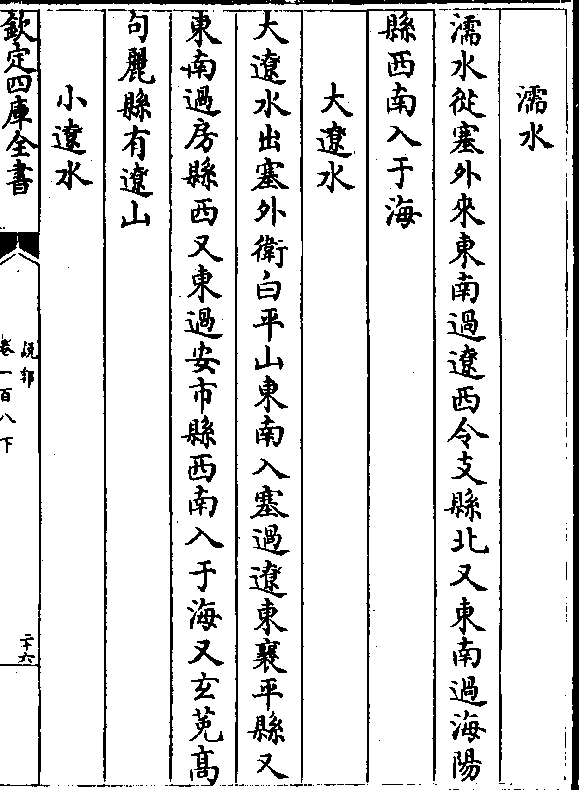 濡水
濡水從塞外來東南過遼西令支縣北又東南過海陽
縣西南入于海
大遼水
大遼水出塞外衛白平山東南入塞過遼東襄平縣又
東南過房縣西又東過安市縣西南入于海又玄菟高
句麗縣有遼山
小遼水
欽定四庫全書
說郛
卷一百八下
二十六